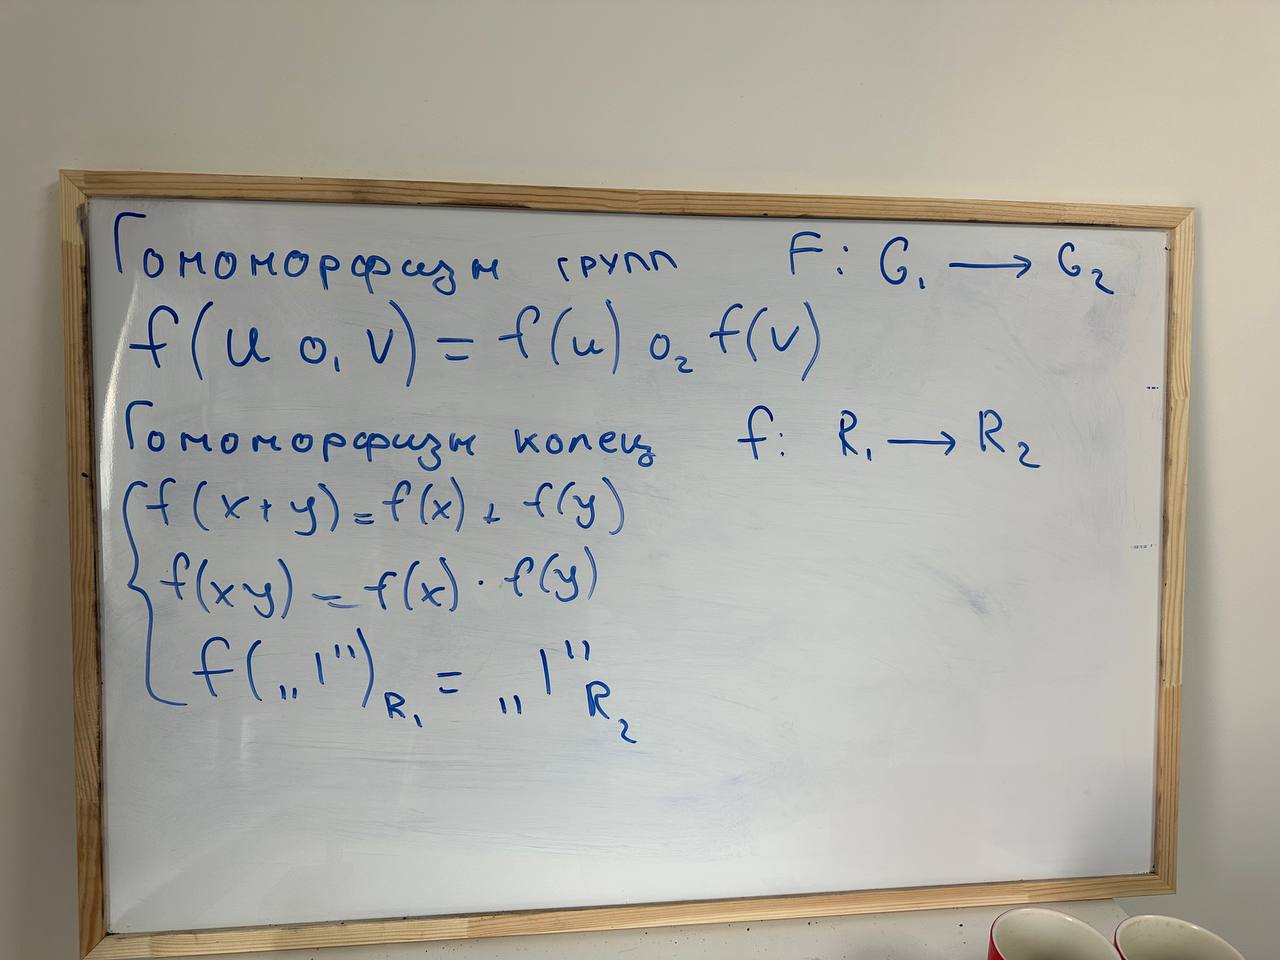 Гомоморфизм групп F: G₁ ⟶ G₂
f(u o₁ v) = f(u) o₂ f(v)
Гомоморфизм колец f: R₁ ⟶ R₂
f(x+y) = f(x) + f(y)
f(xy) = f(x) · f(y)
f(„1")_R₁ = „1"_R₂